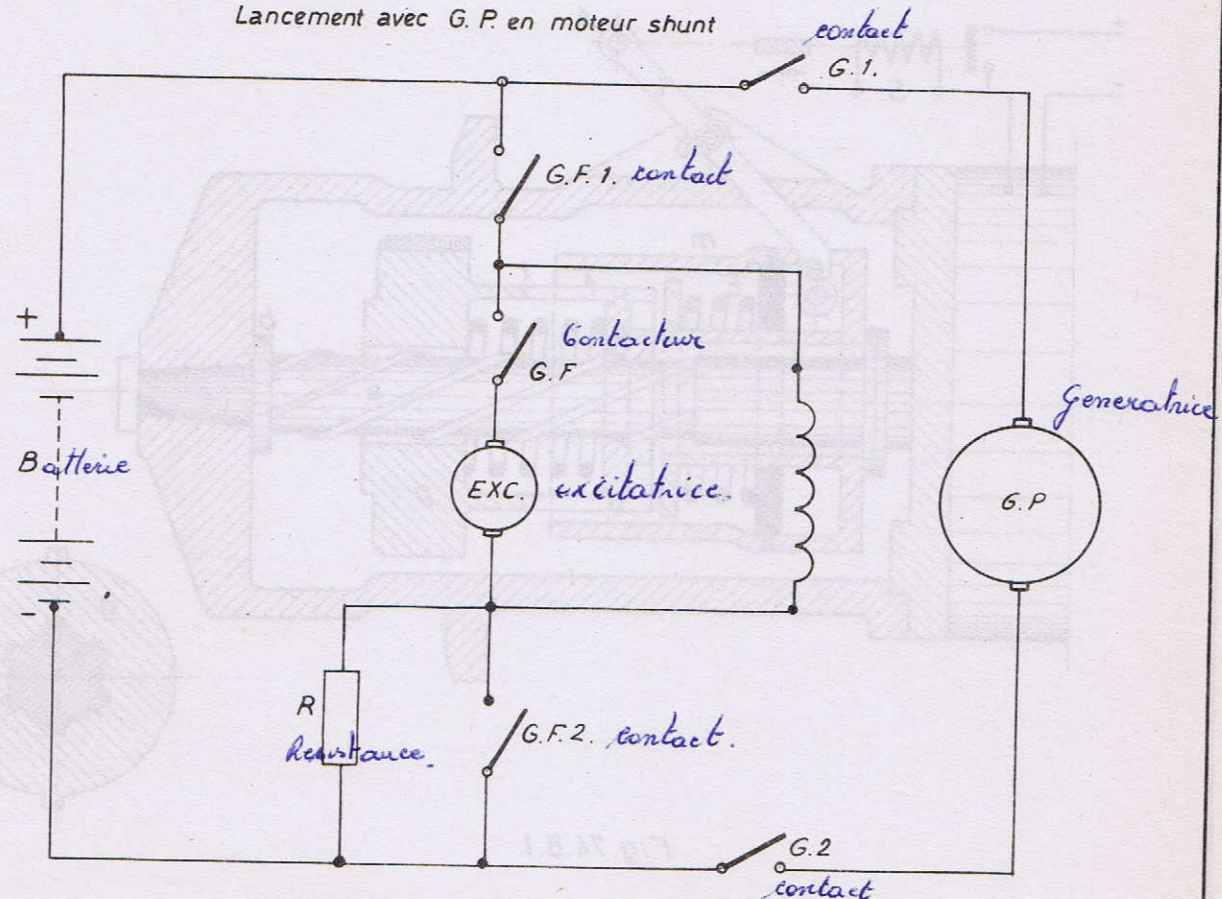 Lancement avec G.P. en moteur shunt
contact
G.1.
G.F.1. contact
+
Contacteur
G.F
Generatrice
Batterie
EXC. excitatrice.
G.P
-
R
Resistance.
G.F.2. contact.
G.2
contact
Fig.74.8.1